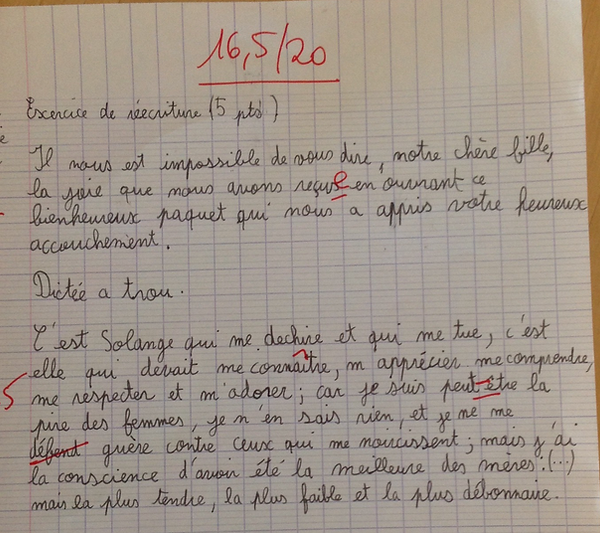 16,5/20
Exercice de réecriture (5 pts)
Il nous est impossible de vous dire, notre chère fille,
la joie que nous avons reçue en ouvrant ce
bienheureux paquet qui nous a appris votre heureux
accouchement.
Dictée a trou.
C'est Solange qui me dechire et qui me tue, c'est
elle qui devait me connaître, m apprécier me comprendre,
5 me respecter et m'adorer; car je suis peut-être la
pire des femmes, je n'en sais rien, et je ne me
défend guère contre ceux qui me noircissent; mais j'ai
la conscience d'avoir été la meilleure des mères. (...)
mais la plus tendre, la plus faible et la plus débonnaire.